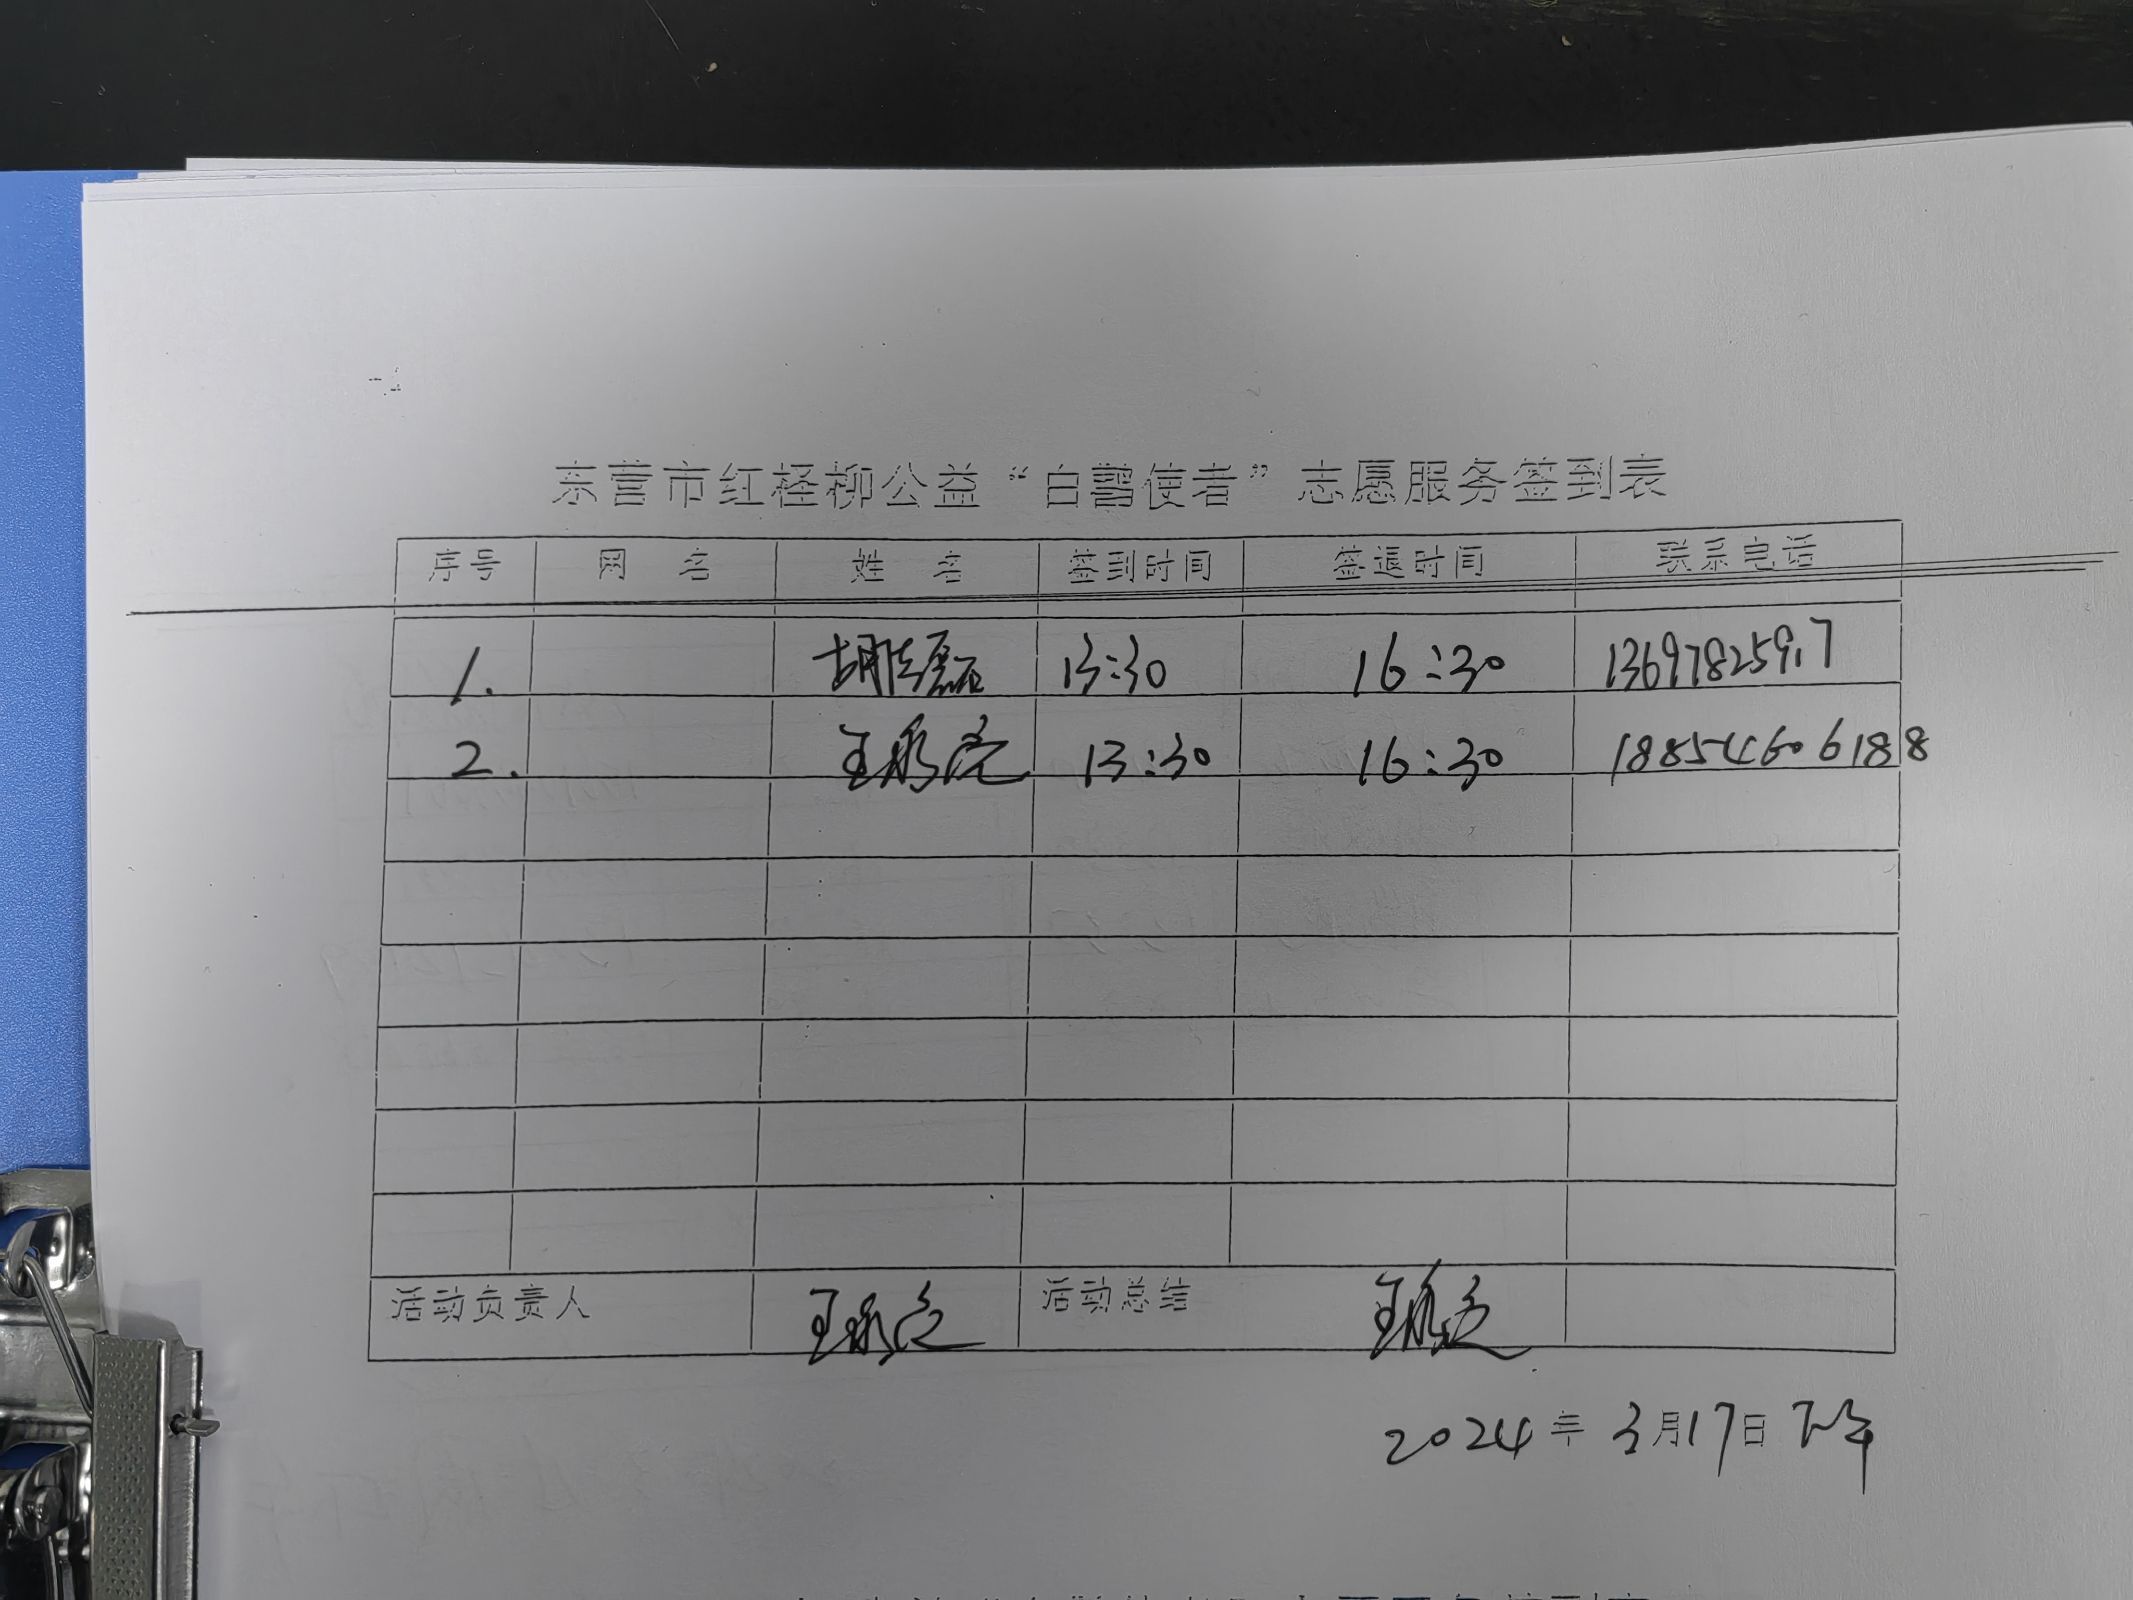 东营市红柽柳公益“白鹭使者”志愿服务签到表
序号 网 名 姓 名 签到时间 签退时间 联系电话
1. 13:30 16:30 13697825917
2. 王彤亮 13:30 16:30 18854606188
活动负责人 王彤亮 活动总结 王彤亮
2024年 3月17日 下午